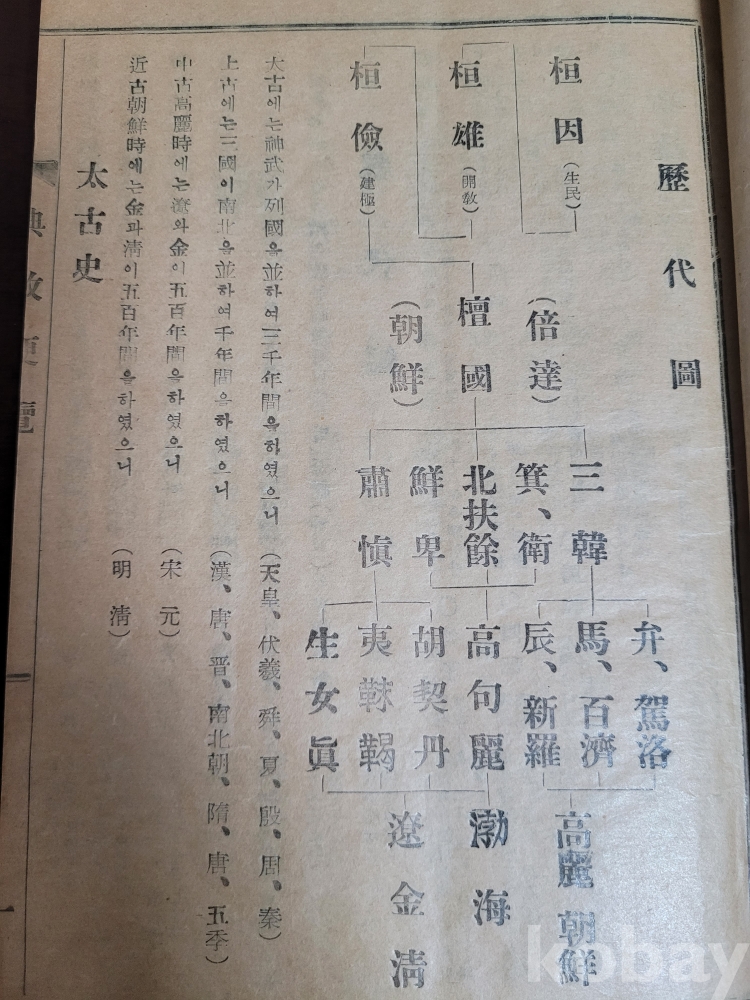 歷代圖
桓因(生民)
桓雄(開敎)
桓儉(建極)
(倍達)
檀國
(朝鮮)
三韓
箕、衛
北扶餘
鮮卑
肅愼
弁、駕洛
馬、百濟
辰、新羅
高句麗
胡契丹
夷靺鞨
生女眞
高麗朝鮮
渤海
遼金淸
太古에는神武가列國을並하여三千年間을하였으니 (天皇、伏羲、舜、夏、殷、周、秦)
上古에는三國이南北을並하여千年間을하였으니 (漢、唐、晋、南北朝、隋、唐、五季)
中古高麗時에는遼와金이五百年間을하였으니 (宋元)
近古朝鮮時에는金과淸이五百年間을하였으니 (明淸)
太古史
kobay